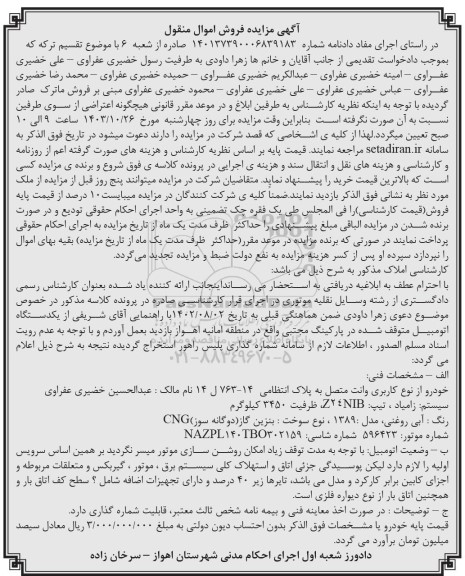 آگهی مزایده فروش اموال منقول
در راستای اجرای مفاد دادنامه شماره ۱۴۰۱۳۷۳۹۰۰۰۶۸۳۹۱۸۳ صادره از شعبه ۶ با موضوع تقسیم ترکه که
بموجب دادخواست تقدیمی از جانب آقایان و خانم ها زهرا داودی به طرفیت رسول خضیری عفراوی – علی خضیری
عفــراوی – امینه خضیری عفراوی – عبدالکریم خضیری عفــراوی – حمیده خضیری عفراوی – محمد رضا خضیری
عفــراوی – عباس خضیری عفراوی – علی خضیری عفراوی – محمود خضیری عفراوی مبنی بر فروش ماترک صادر
گردیده با توجه به اینکه نظریه کارشــناس به طرفین ابلاغ و در موعد مقرر قانونی هیچگونه اعتراضی از ســوی طرفین
نســبت به آن صورت نگرفته اســت بنابراین وقت مزایده برای روز چهارشنبه مورخ ۱۴۰۳/۱۰/۲۶ ساعت ۹ الی ۱۰
صبح تعیین میگردد.لهذا از کلیه ی اشــخاصی که قصد شرکت در مزایده را دارند دعوت میشود در تاریخ فوق الذکر به
سامانه setadiran.ir مراجعه نمایند. قیمت پایه بر اساس نظریه کارشناس و هزینه های صورت گرفته اعم از روزنامه
و کارشناسی و هزینه های نقل و انتقال سند و هزینه ی اجرایی در پرونده کلاسه ی فوق شروع و برنده ی مزایده کسی
است که بالاترین قیمت خرید را پیشــنهاد نماید. متقاضیان شرکت در مزایده میتوانند پنج روز قبل از مزایده از ملک
مورد نظر به نشانی فوق الذکر بازدید نمایند.ضمناً کلیه ی شرکت کنندگان در مزایده میبایست ۱۰ درصد از قیمت پایه
فروش(قیمت کارشناسی)را فی المجلس طی یک فقره چک تضمینی به واحد اجرای احکام حقوقی تودیع و در صورت
برنده شــدن در مزایده الباقی مبلغ پیشــنهادی را حداکثر ظرف مدت یک ماه از تاریخ مزایده به اجرای احکام حقوقی
پرداخت نمایند در صورتی که برنده مزایده در موعد مقرر(حداکثر ظرف مدت یک ماه از تاریخ مزایده) بقیه بهای اموال
را نپردازد سپرده او پس از کسر هزینه مزایده به نفع دولت ضبط و مزایده تجدید می‌گردد.
کارشناسی املاک مذکور به شرح ذیل می باشد:
با احترام عطف به ابلاغیه دریافتی به اســتحضار می رســاند اینجانب ارائه کننده یاد شــده بعنوان کارشناس رسمی
دادگستری از رشته وســایل نقلیه موتوری در اجرای قرار کارشناســی صادره در پرونده کلاسه مذکور در خصوص
موضوع دعوی زهرا داودی ضمن هماهنگی قبلی به تاریخ ۱۴۰۲/۰۸/۰۲ با راهنمایی آقای شریفی از یکدستگاه
اتومبیــل متوقف شــده در پارکینگ مجتبی واقع در منطقه امانیه اهــواز بازدید بعمل آوردم و با توجه به عدم رویت
اسناد مسلم الصدور ، اطلاعات لازم از سامانه شماره گذاری پلیس راهور استخراج گردیده نتیجه به شرح ذیل اعلام
می گردد:
الف – مشخصات فنی:
خودرو از نوع کاربری وانت متصل به پلاک انتظامی ۱۴–۷۶۳ ل ۱۴ نام مالک : عبدالحسین خضیری عفراوی
سیستم: زامیاد ، تیپ: Z۲٤NIB، ظرفیت ۲۴۵۰ کیلوگرم
رنگ : آبی روغنی، مدل :۱۳۸۹ ، نوع سوخت : بنزین گاز(دوگانه سوز)CNG
شماره موتور: ۵۹۶۴۲۳ شماره شاسی: NAZPL۱۴۰TBO۳۰۲۱۵۹
ب – وضعیت اتومبیل: با توجه به مدت توقف زیاد امکان روشــن ســازی موتور میسر نگردید بر همین اساس سرویس
اولیه را لازم دارد لیکن پوســیدگی جزئی اتاق و استهلاک کلی سیســتم برق ، موتور ، گیربکس و متعلقات مربوطه و
اجزای کابین برابر کارکرد و مدل می باشد، تایرها زیر ۴۰ درصد و دارای تجهیزات اضافه شامل ؟ سطح کف اتاق بار و
همچنین اتاق بار از نوع دیواره فلزی است.
ج – توضیحات : در صورت اخذ معاینه فنی و بیمه نامه شخص ثالث معتبر، قابلیت شماره گذاری دارد.
قیمت پایه خودرو با مشــخصات فوق الذکر بدون احتساب دیون دولتی به مبلغ ۳/۰۰۰/۰۰۰/۰۰۰ ریال معادل سیصد
میلیون تومان برآورد می گردد.
دادورز شعبه اول اجرای احکام مدنی شهرستان اهواز – سرخان زاده
۰۲۱–۸۸۳۴۹۶۷۰–۵